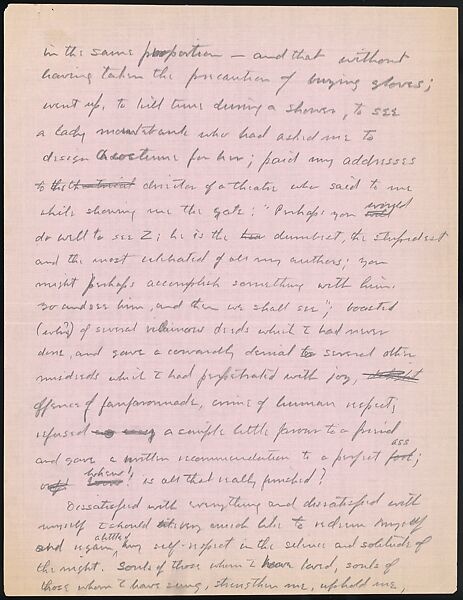 in the same proportion — and that without
having taken the precaution of buying gloves;
went up, to kill time during a shower, to see
a lady mountebank who had asked me to
design a costume for her; paid my addresses
to the theatrical director of a theatre who said to me
while showing me the gate: "Perhaps you would
do well to see Z; he is the dumbest, the stupidest
and the most celebrated of all my authors; you
might perhaps accomplish something with him.
Go and see him, and then we shall see"; boasted
(why?) of several villainous deeds which I had never
done, and gave a cowardly denial to several other
misdeeds which I had perpetrated with joy,
offence of fanfaronnade, crime of human respect;
refused a couple little favour to a friend
and gave a written recommendation to a perfect ass;
! is all that really finished?
Dissatisfied with everything and dissatisfied with
myself I should very much like to redeem myself
and regain a little of my self-respect in the silence and solitude of
the night. Souls of those whom I have loved, souls of
those whom I have sung, strengthen me, uphold me,